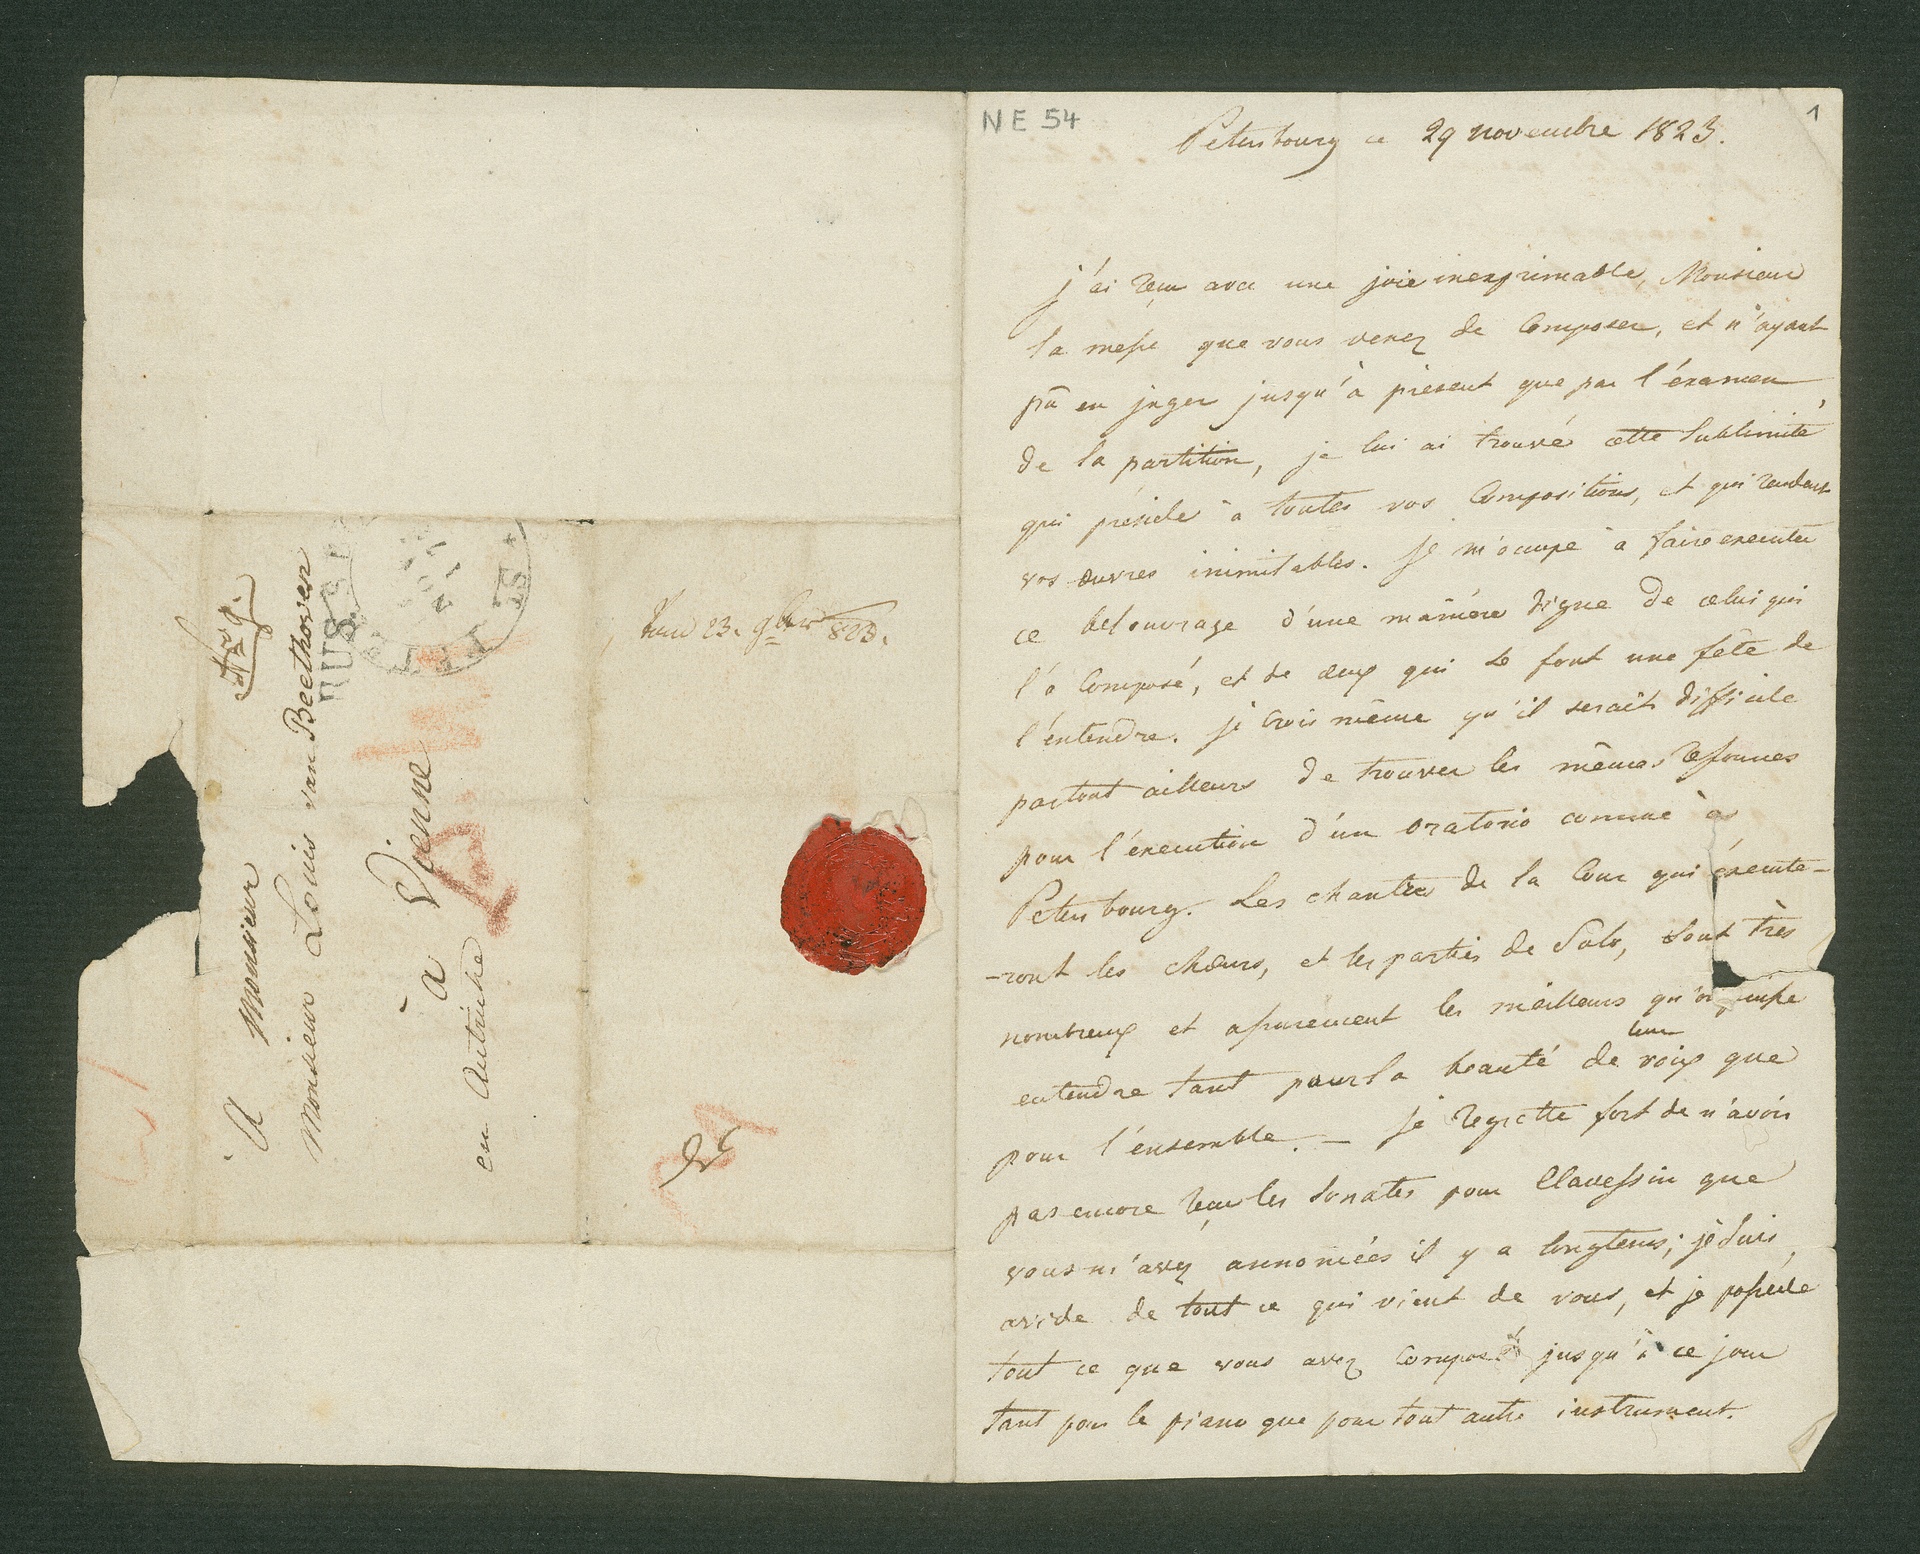 NE 54
1
Petersbourg ce 29 novembre 1823.
j'ai reçu avec une joie inexprimable, Monsieur
la messe que vous venez de composer, et n'ayant
pû en juger jusqu'à présent que par l'éxamen
de la partition, je lui ai trouvé cette sublimité
qui préside à toutes vos Compositions, et qui rendent
vos œuvres inimitables. je m'occupe à faire executer
ce bel ouvrage d'une maniére digne de celui qui
l'a composé, et de ceux qui se font une fête de
l'entendre. je crois même qu'il serait difficile
partout ailleurs de trouver les mêmes
pour l'éxecution d'un oratorio comme à
Petersbourg. Les chantres de la Cour qui éxecute-
-ront les chœurs, et les parties de Solo, sont très
nombreux et assurement les meilleurs qu'on puisse
leur
entendre tant pour la beauté de voix que
pour l'ensemble. — je regrette fort de n'avoir
pas encore reçu les Sonates pour Clavessin que
vous m'avez annoncées il y a longtems; je suis
avide de tout ce qui vient de vous, et je posséde
tout ce que vous avez composé jusqu'à ce jour
tant pour le piano que pour tout autre instrument.
23. 9ber 823.
A Monsieur
Monsieur Louis van Beethoven
à Vienne
en Autriche
ST. PET
RUSS